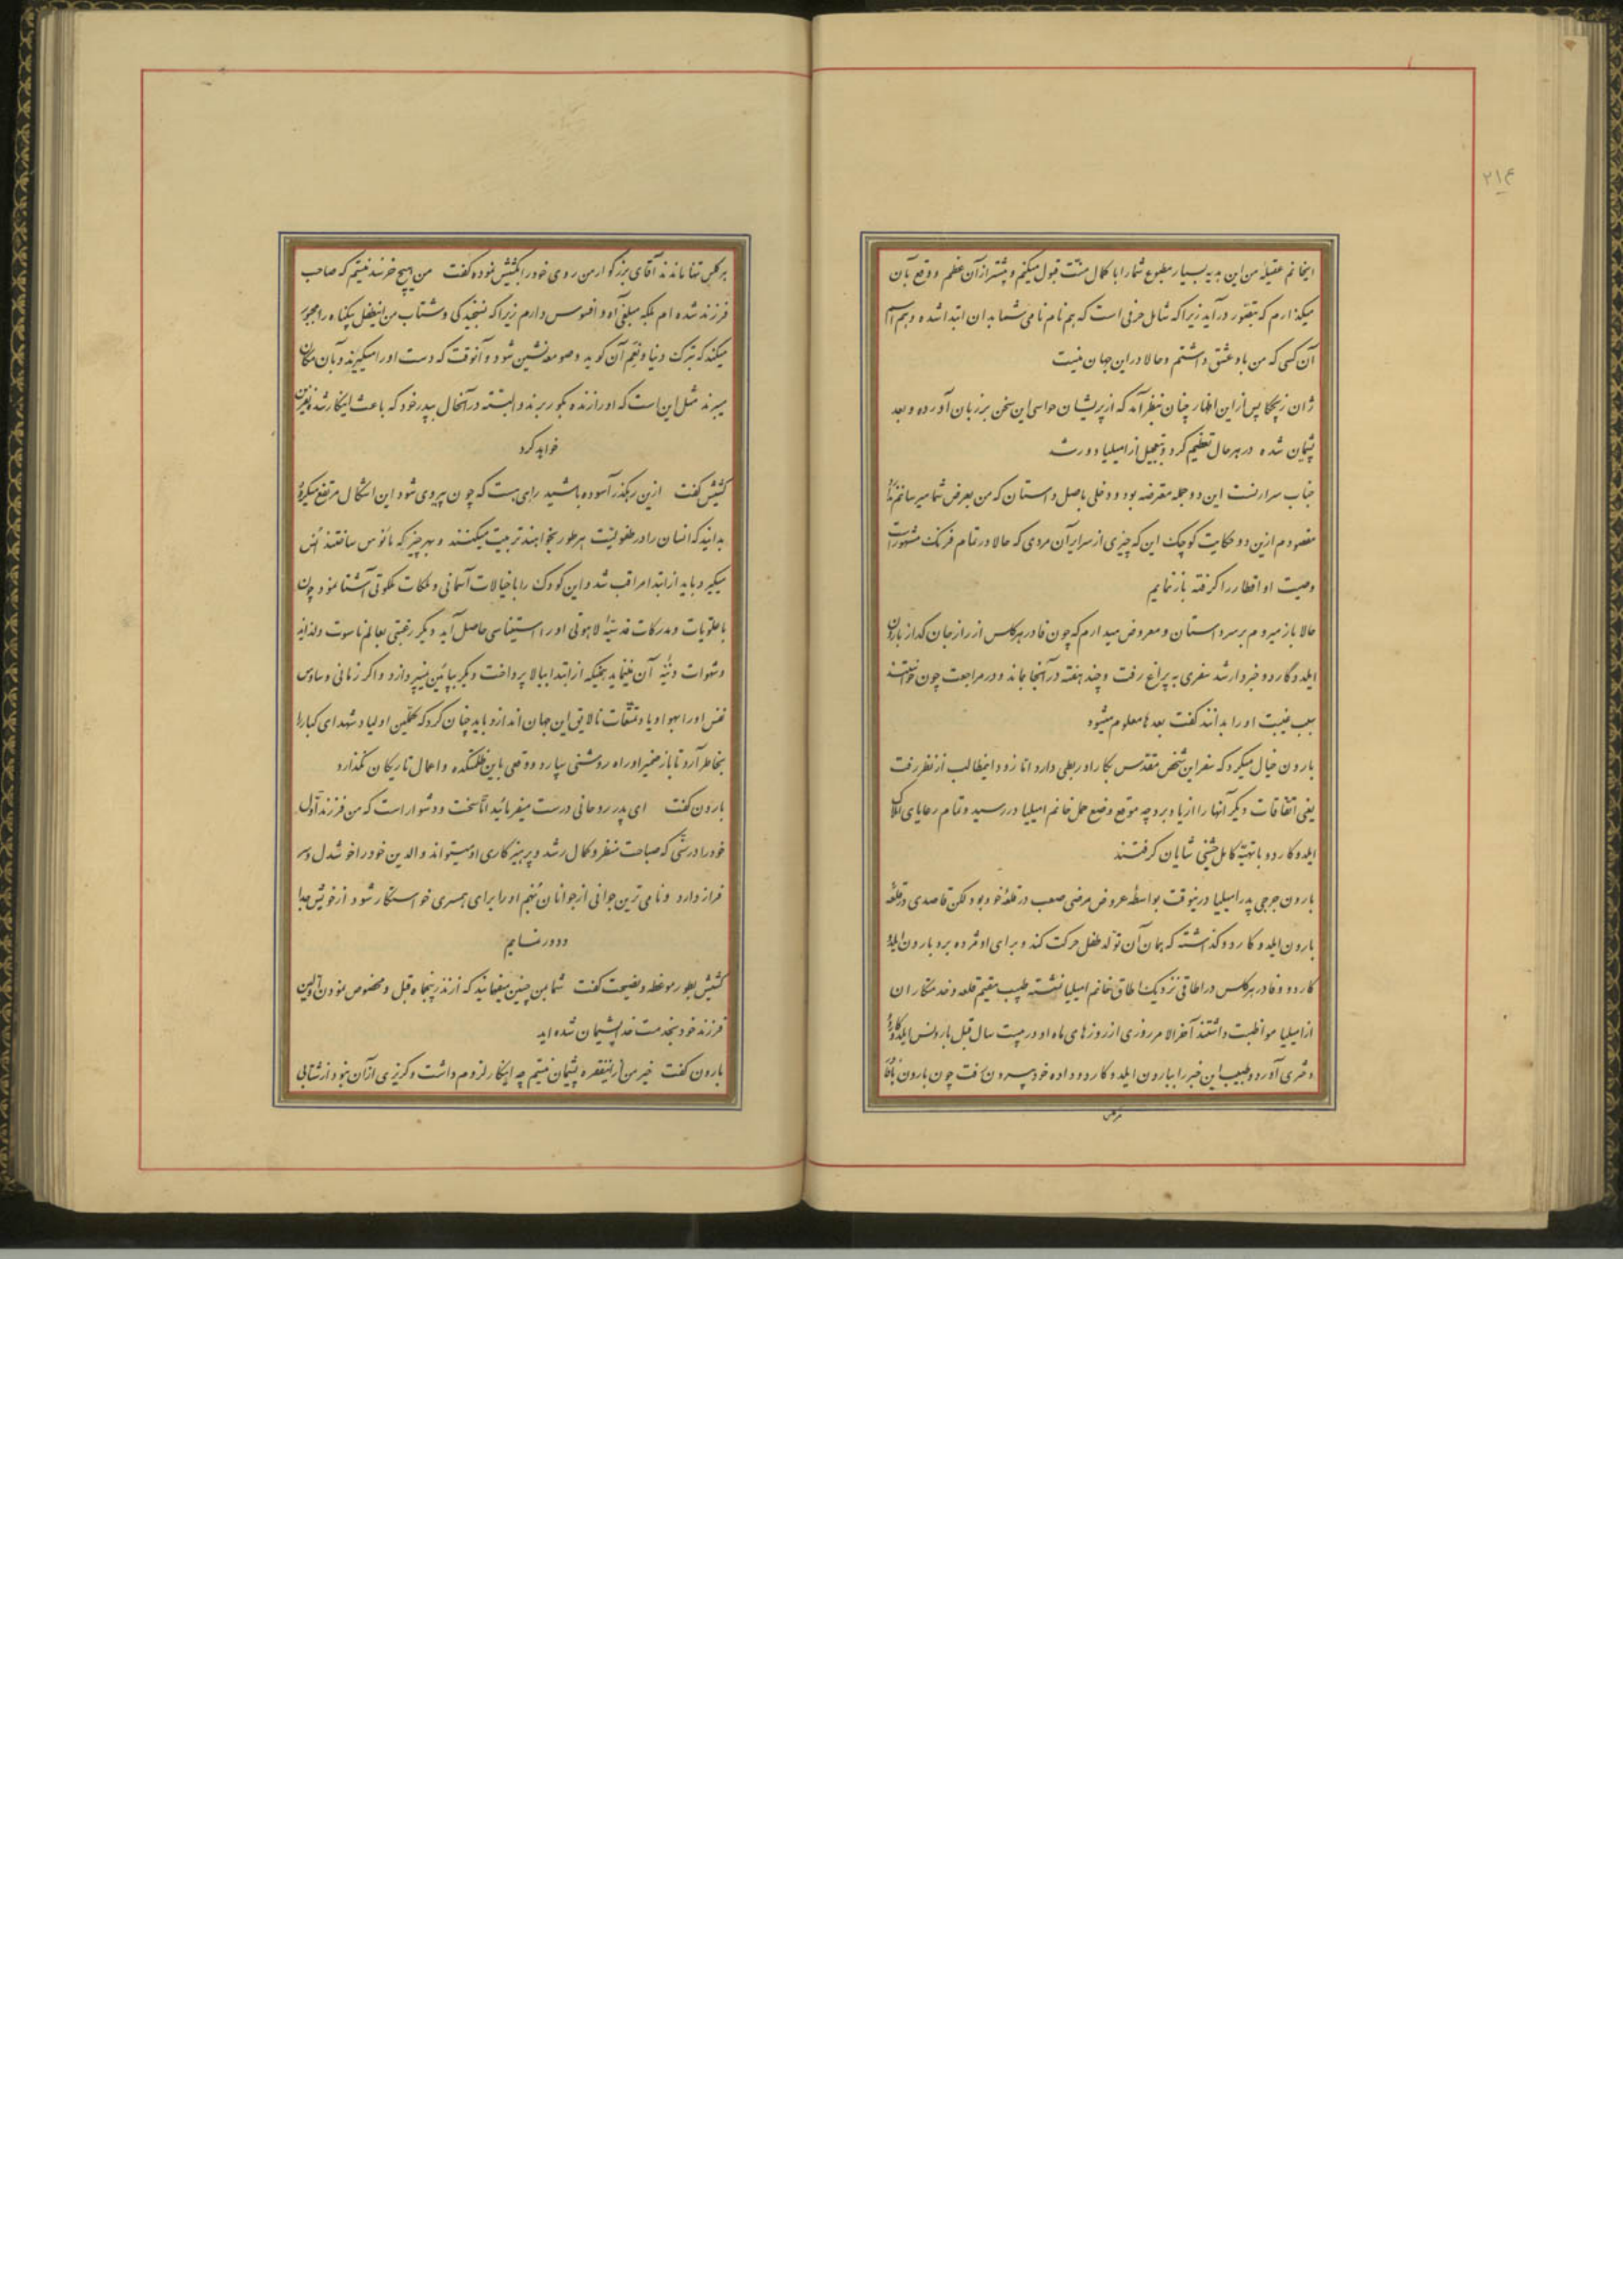 ۲۱۴
ایخانم عقیله من این هدیه بسیار مطبوع شما را با کمال منت قبول میکنم و بیشتر از آن عظم و وقع بآن
میگذارم که بتصور درآید زیرا که شامل حرفی است که هم نام نامی شما بدان ابتدا شده و هم اسم
آن کسی که من باو عشق داشتم و حالا در این جهان نیست
ژان زیچکا پس از این اظهار چنان بنظر آمد که از پریشان حواسی این سخن بر زبان آورده و بعد
پشیمان شده در هر حال تعظیم کرد و بتعجیل از امیلیا دور شد
جناب سرارنست این دو جمله معترضه بود و دخلی باصل داستان که من بعرض شما میرسانم
مقصودم ازین دو حکایت کوچک این که چیزی از سرایر آن مردی که حالا در تمام فرنگ مشهور است
وصیت او اقطار را گرفته باز نمایم
حالا باز میروم بر سر داستان و معروض میدارم که چون فادر هرکلس از راز جان گداز بارون
ایلدوگاردو خبردار شد سفری به پراغ رفت و چند هفته در آنجا بماند و در مراجعت چون خواستند
سبب غیبت او را بدانند گفت بعدها معلوم میشود
بارون خیال میکرد که سفر این شخص مقدس بکار او ربطی دارد اما زود اینمطالب از نظر رفت
یعنی اتفاقات دیگر آنها را از یاد برد چه موقع وضع حمل خانم امیلیا در رسید و تمام رعایای املاک
ایلدوکاردو با تهیه کامل جشنی شایان گرفتند
بارون جرجی پدر امیلیا درینوقت بواسطه عروض مرضی صعب در قلعه خود بود لکن قاصدی در قلعه
بارون ایلدوکاردو گذاشته که همان آن تولد طفل حرکت کند و برای او مژده برد بارون ایلدو
کاردو و فادر هرکلس در اطاقی نزدیک اطاق خانم امیلیا نشسته طبیب مقیم قلعه و خدمتکاران
از امیلیا مواظبت داشتند آخرالامر روزی از روزهای ماه او در بیست سال قبل بارونس ایلدوکاردو
دختری آورد و طبیب این خبر را ببارون ایلدوکاردو داده خود بیرون رفت چون بارون با فادر
هرکلس
هرکلس تنها ماندند آقای بزرگوار من روی خود را بکشیش نموده گفت من هیچ خرسند نیستم که صاحب
فرزند شده ام بلکه مبلغی آه و افسوس دارم زیرا که نسنجیدگی و شتاب من اینطفل بیگناه را مجبور
میکند که ترک دنیا و نعیم آن گوید و صومعه نشین شود و آنوقت که دست او را میگیرند و بآن مکان
میبرند مثل این است که او را زنده بگور برند و البته در آنحال بپدر خود که باعث اینکار شده نفرین
خواهد کرد
کشیش گفت ازین رهگذر آسوده باشید رای هست که چون پیروی شود این اشکال مرتفع میگردد
بدانید که انسان را در طفولیت هر طور بخواهند تربیت میکنند و بهر چیز که مأنوس ساختند انس
میگیرد باید از ابتدا مراقب شد و این کودک را با خیالات آسمانی و ملکات ملکوتی آشنا نمود چون
با علویات و مدرکات قدسیه لاهوتی او را استیناسی حاصل آید دیگر رغبتی بعالم ناسوت و لذاید
و شهوات دنیه آن ننماید همینکه از ابتدا ببالا پرداخت دیگر بپائین نمیپردازد و اگر زمانی وساوس
نفس او را بهوا و یا و تمتعات نالایق این جهان اندازد باید چنان کرد که عقلین اولیا و شهدای کبار را
بخاطر آرد تا باز ضمیر او راه روشنی سپارد و وقعی باین ظلمتکده و اعمال تاریکان نگذارد
بارون گفت ای پدر روحانی درست میفرمائید اما سخت و دشوار است که من فرزند اول
خود را در سنی که صباحت منظر و کمال رشد و پرهیزکاری او میتواند والدین خود را خوشدل و سر
فراز دارد و نامی ترین جوانی از جوانان نجیم او را برای همسری خواستگار شود از خویش جدا
و دور نمایم
کشیش بطور موعظه و نصیحت گفت شما بمن چنین میفهمانید که از نذر پنجاه قبل و مخصوص نمودن اولین
فرزند خود بخدمت خدا پشیمان شده اید
بارون گفت خیر من ازینفقره پشیمان نیستم چه اینکار لزوم داشت و گریزی از آن نبود از شتابی